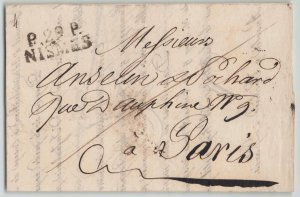 P. 29 P.
NISMES
Messieurs
Anselin & Pochard
Rue Dauphine N.º 9.
à Paris